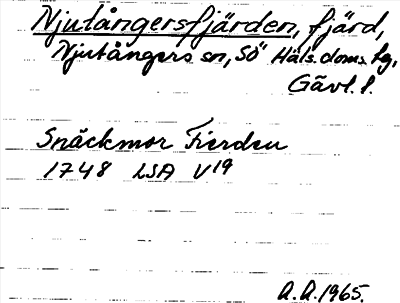 Njutångersfjärden, fjärd,
Njutångers sn, Sö" Häls. doms. tg,
Gävl. l.
Snäckmor Fierden
1748 LSA V19
A.A. 1965.